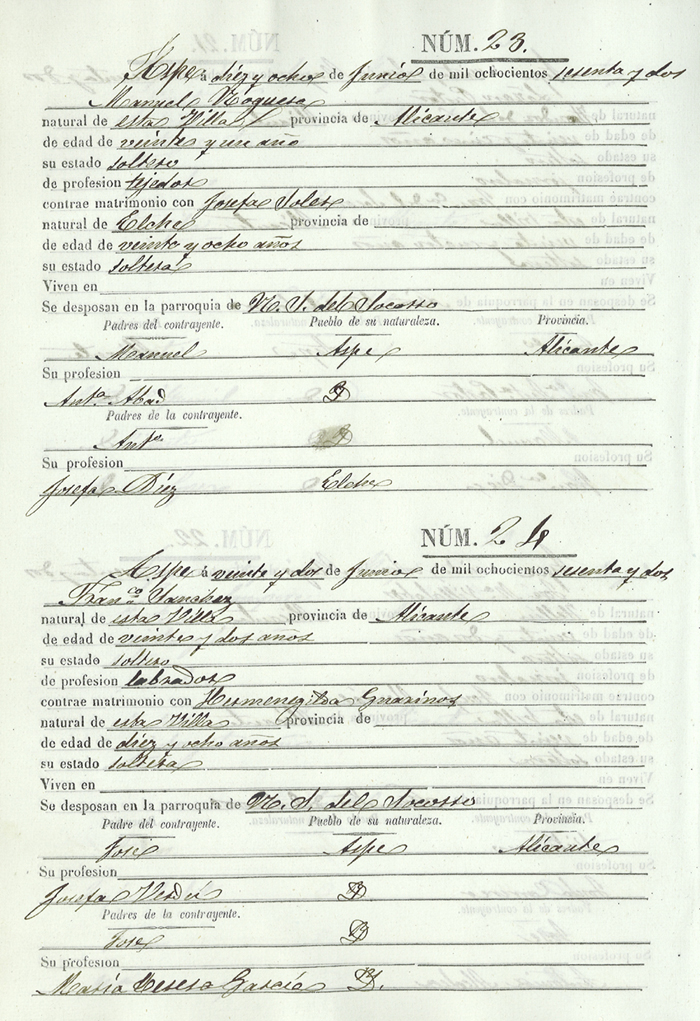 NÚM. 23.
Aspe á diez y ocho de Junio de mil ochocientos sesenta y dos
Manuel Noguera
natural de esta Villa provincia de Alicante
de edad de veinte y un año
su estado soltero
de profesion tejedor
contrae matrimonio con Josefa Soler
natural de Elche provincia de
de edad de veinte y ocho años
su estado soltera
Viven en
Se desposan en la parroquia de N. S. del Socorro
Padres del contrayente. Pueblo de su naturaleza. Provincia.
Manuel Aspe Alicante
Su profesion
Antª. Abad D
Padres de la contrayente.
Antº. D
Su profesion
Josefa Diez Elche
NÚM. 24
Aspe á veinte y dos de Junio de mil ochocientos sesenta y dos
Franco. Sanchez
natural de esta Villa provincia de Alicante
de edad de veinte y dos años
su estado soltero
de profesion labrador
contrae matrimonio con Hermenegilda Guarinos
natural de esta Villa provincia de
de edad de diez y ocho años
su estado soltera
Viven en
Se desposan en la parroquia de N. S. del Socorro
Padre del contrayente. Pueblo de su naturaleza. Provincia.
José Aspe Alicante
Su profesion
Josefa Verdú D
Padres de la contrayente.
Jose D
Su profesion
Maria Teresa Garcia D.